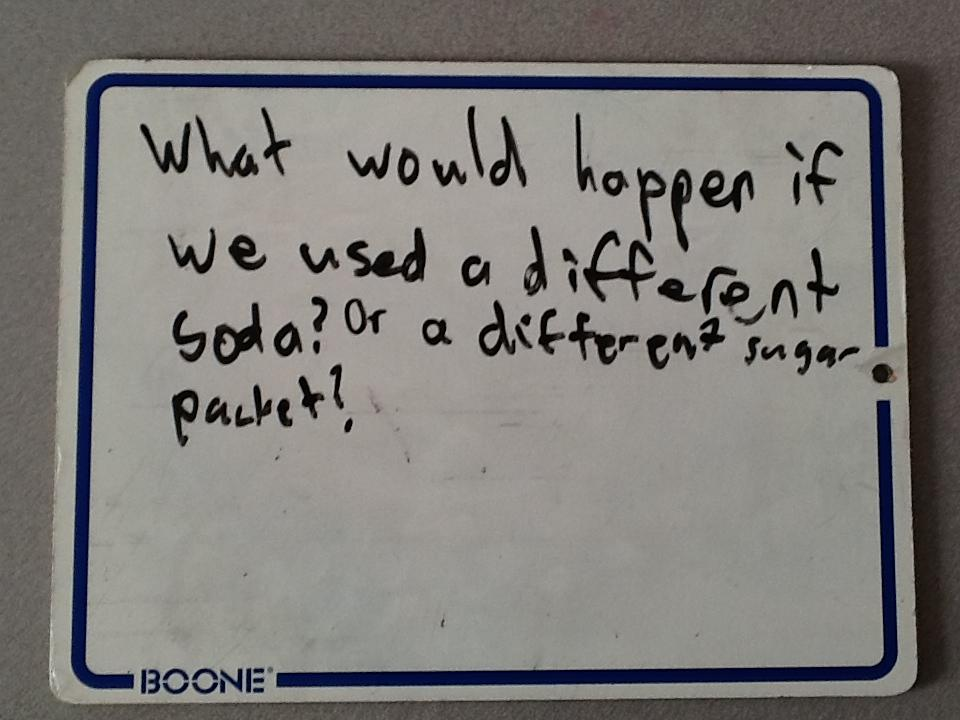 What would happen if
we used a different
soda? Or a different sugar
packet?
BOONE®